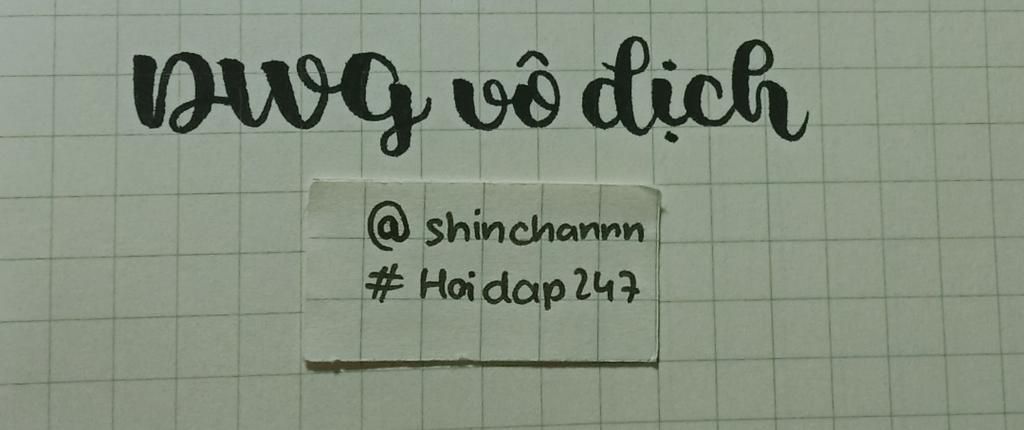 DWG vô địch
@ shinchannn
# Hoidap247